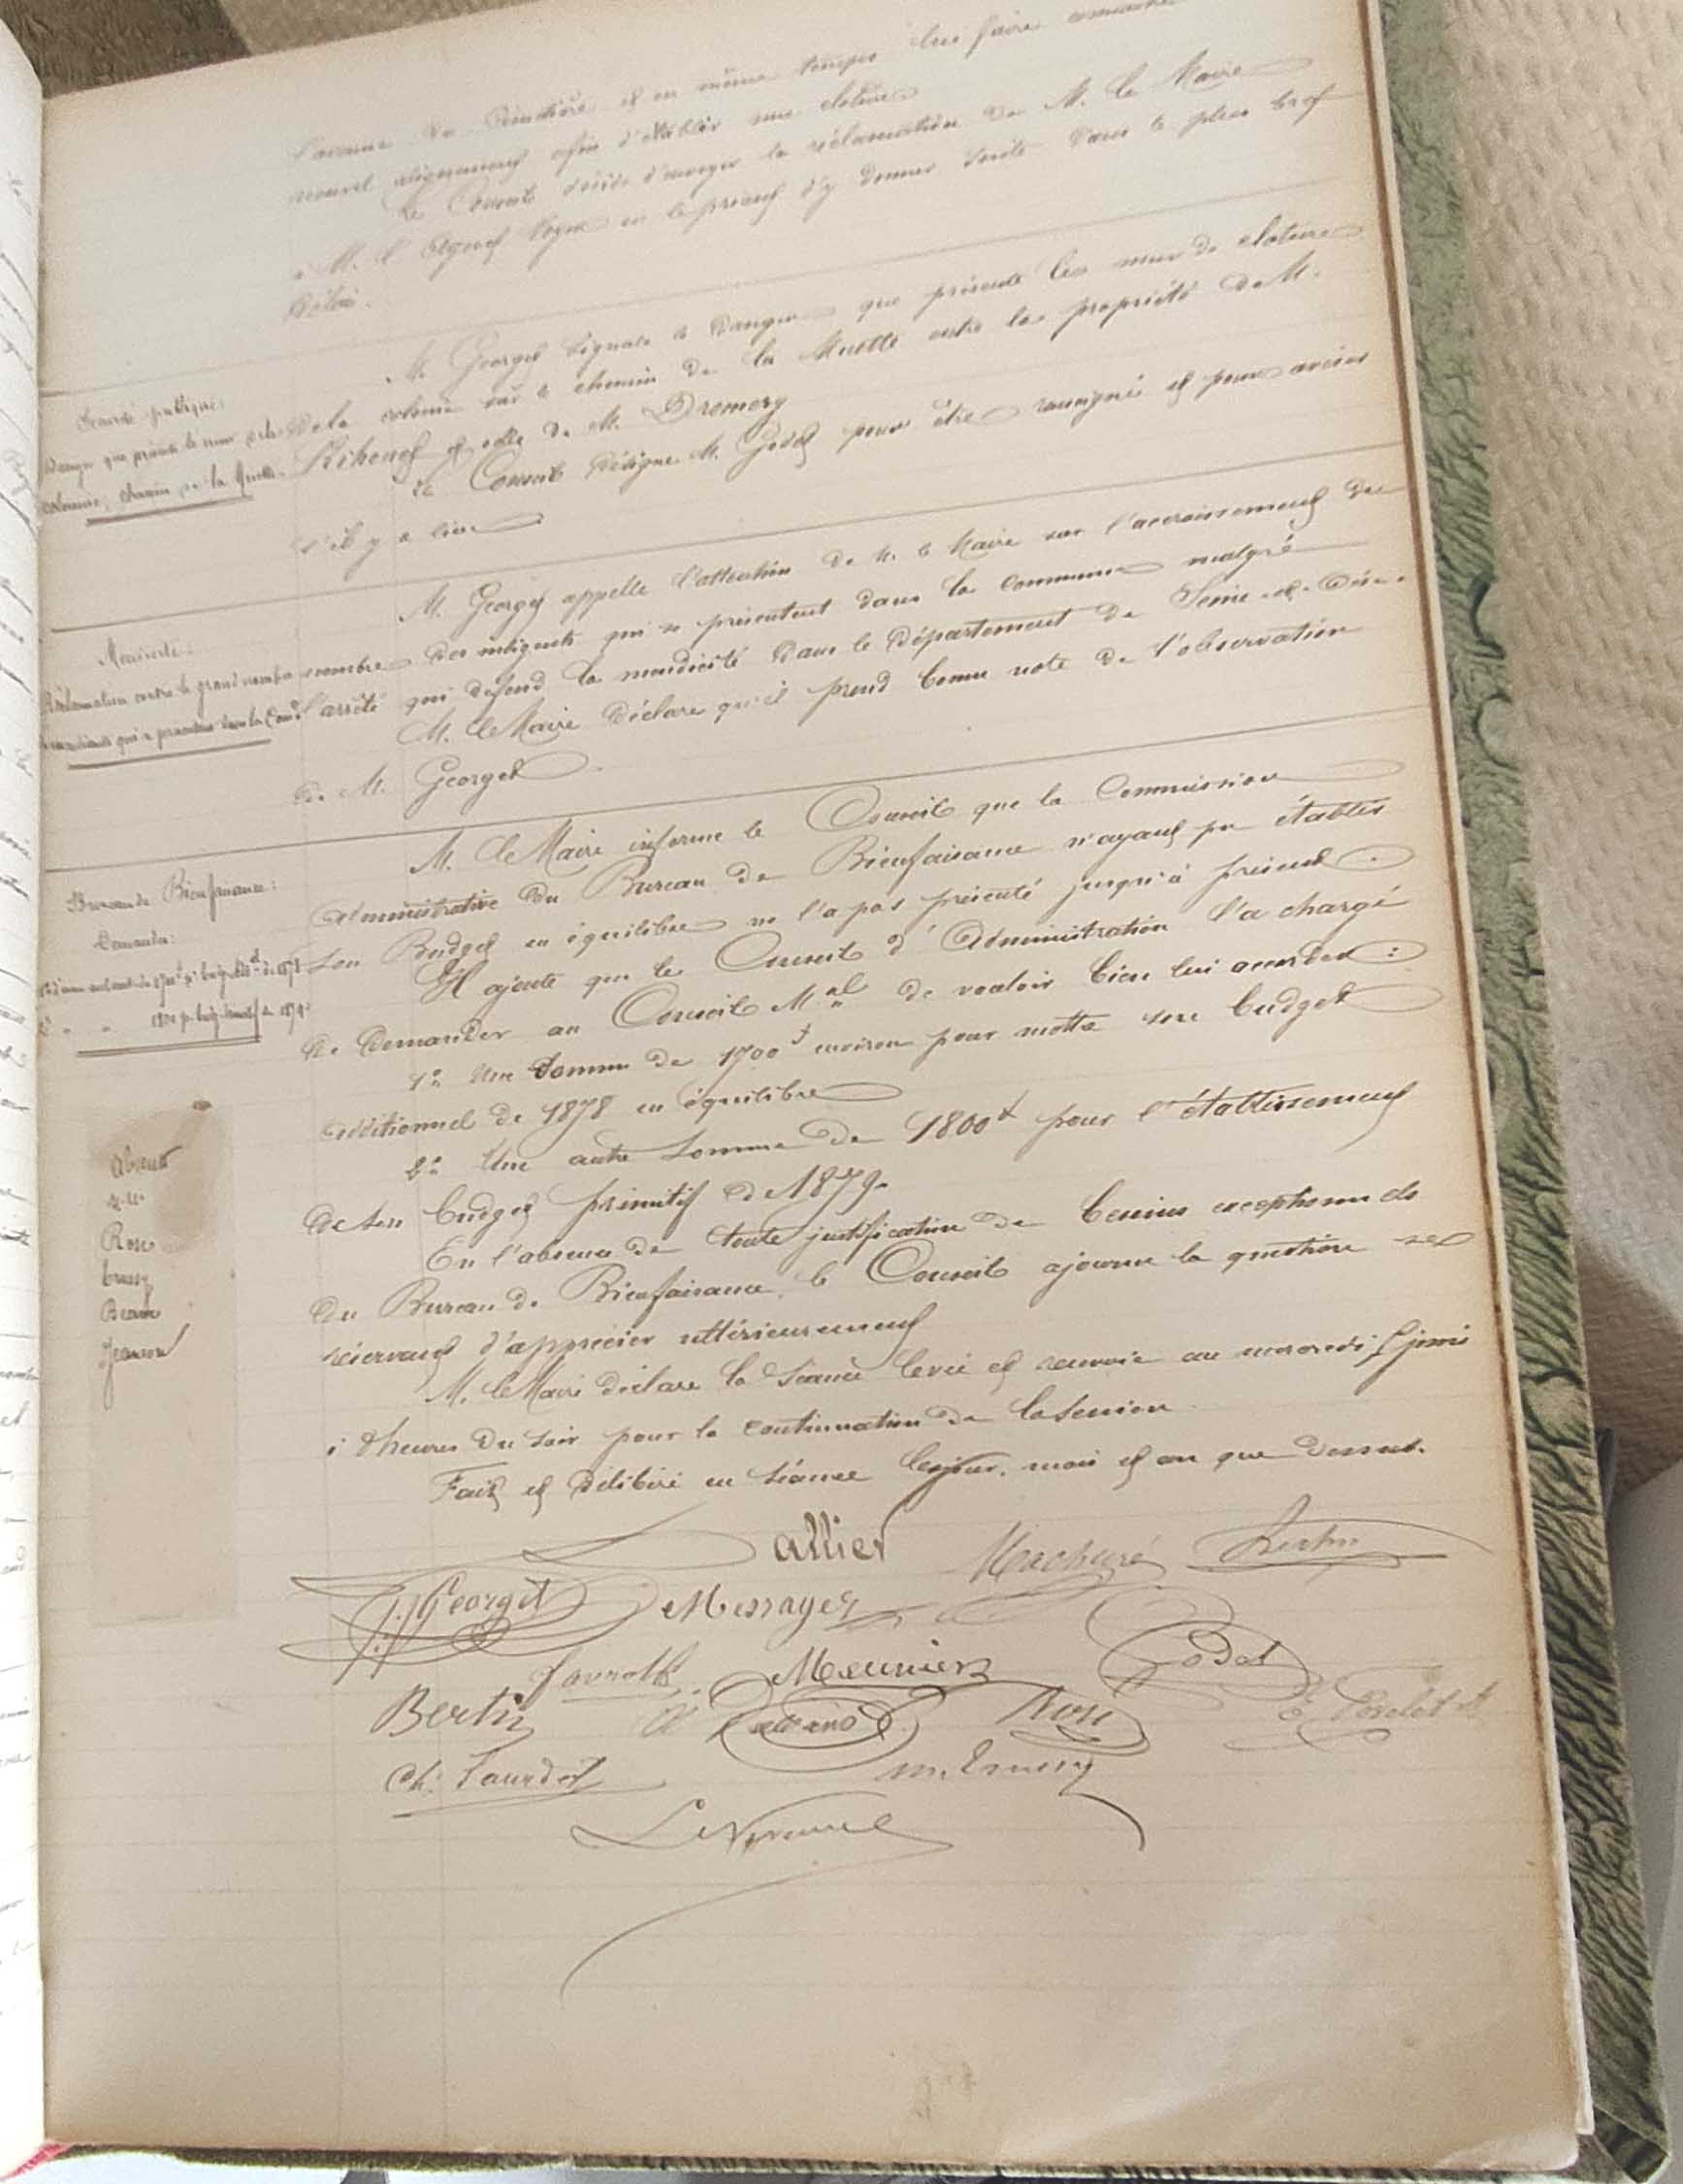 du Cimetière et en même temps lui faire
nouvel alignement afin d'établir une clôture
Le Conseil décide d'envoyer la réclamation de M. le Maire
à M. l' Agent Voyer en le priant d'y donner suite dans le plus bref
délai.
Sécurité publique.
Danger que présente le mur de la
colonie, chemin de la Muette.
M. Georget signale le danger que présente les murs de clôture
de la colonie sur le chemin de la Muette entre la propriété de M.
et celle de M. Dromery
Le Conseil désigne M. Godet pour être renseigné et pour aviser
s'il y a lieu
Mendicité.
Réclamation contre le grand nombre
qui se présentent dans la
M. Georget appelle l'attention de M. le Maire sur l'accroissement du
nombre des indigents qui se présentent dans la commune malgré
l'arrêté qui défend la mendicité dans le département de Seine-et-Oise.
M. le Maire déclare qu'il prend bonne note de l'observation
de M. Georget.
Bureau de Bienfaisance:
Demandes:
M. le Maire informe le Conseil que la Commission
administrative du Bureau de Bienfaisance n'ayant pu établir
son Budget en équilibre ne l'a pas présenté jusqu'à présent.
Il ajoute que le Conseil d'Administration l'a chargé
de demander au Conseil Mal de vouloir bien lui accorder :
1° Une somme de 1700f environ pour mettre son budget
additionnel de 1878 en équilibre
2° Une autre somme de 1800f pour l'établissement
de son budget primitif de 1879.
En l'absence de toute justification de besoins exceptionnels
du Bureau de Bienfaisance, le Conseil ajourne la question se
réservant d'apprécier ultérieurement
M. le Maire déclare la séance levée et renvoie au mercredi 5 juin
à 8 heures du soir pour la continuation de la session.
Fait et délibéré en séance les jour, mois et an que dessus.
Absents
M.M.
Rose
Trussy
allier
Georget
Messager
Machuré
Bertin
Meunier
Godet
Bertin
Rose
Ch. Tourdot
m. Trussy